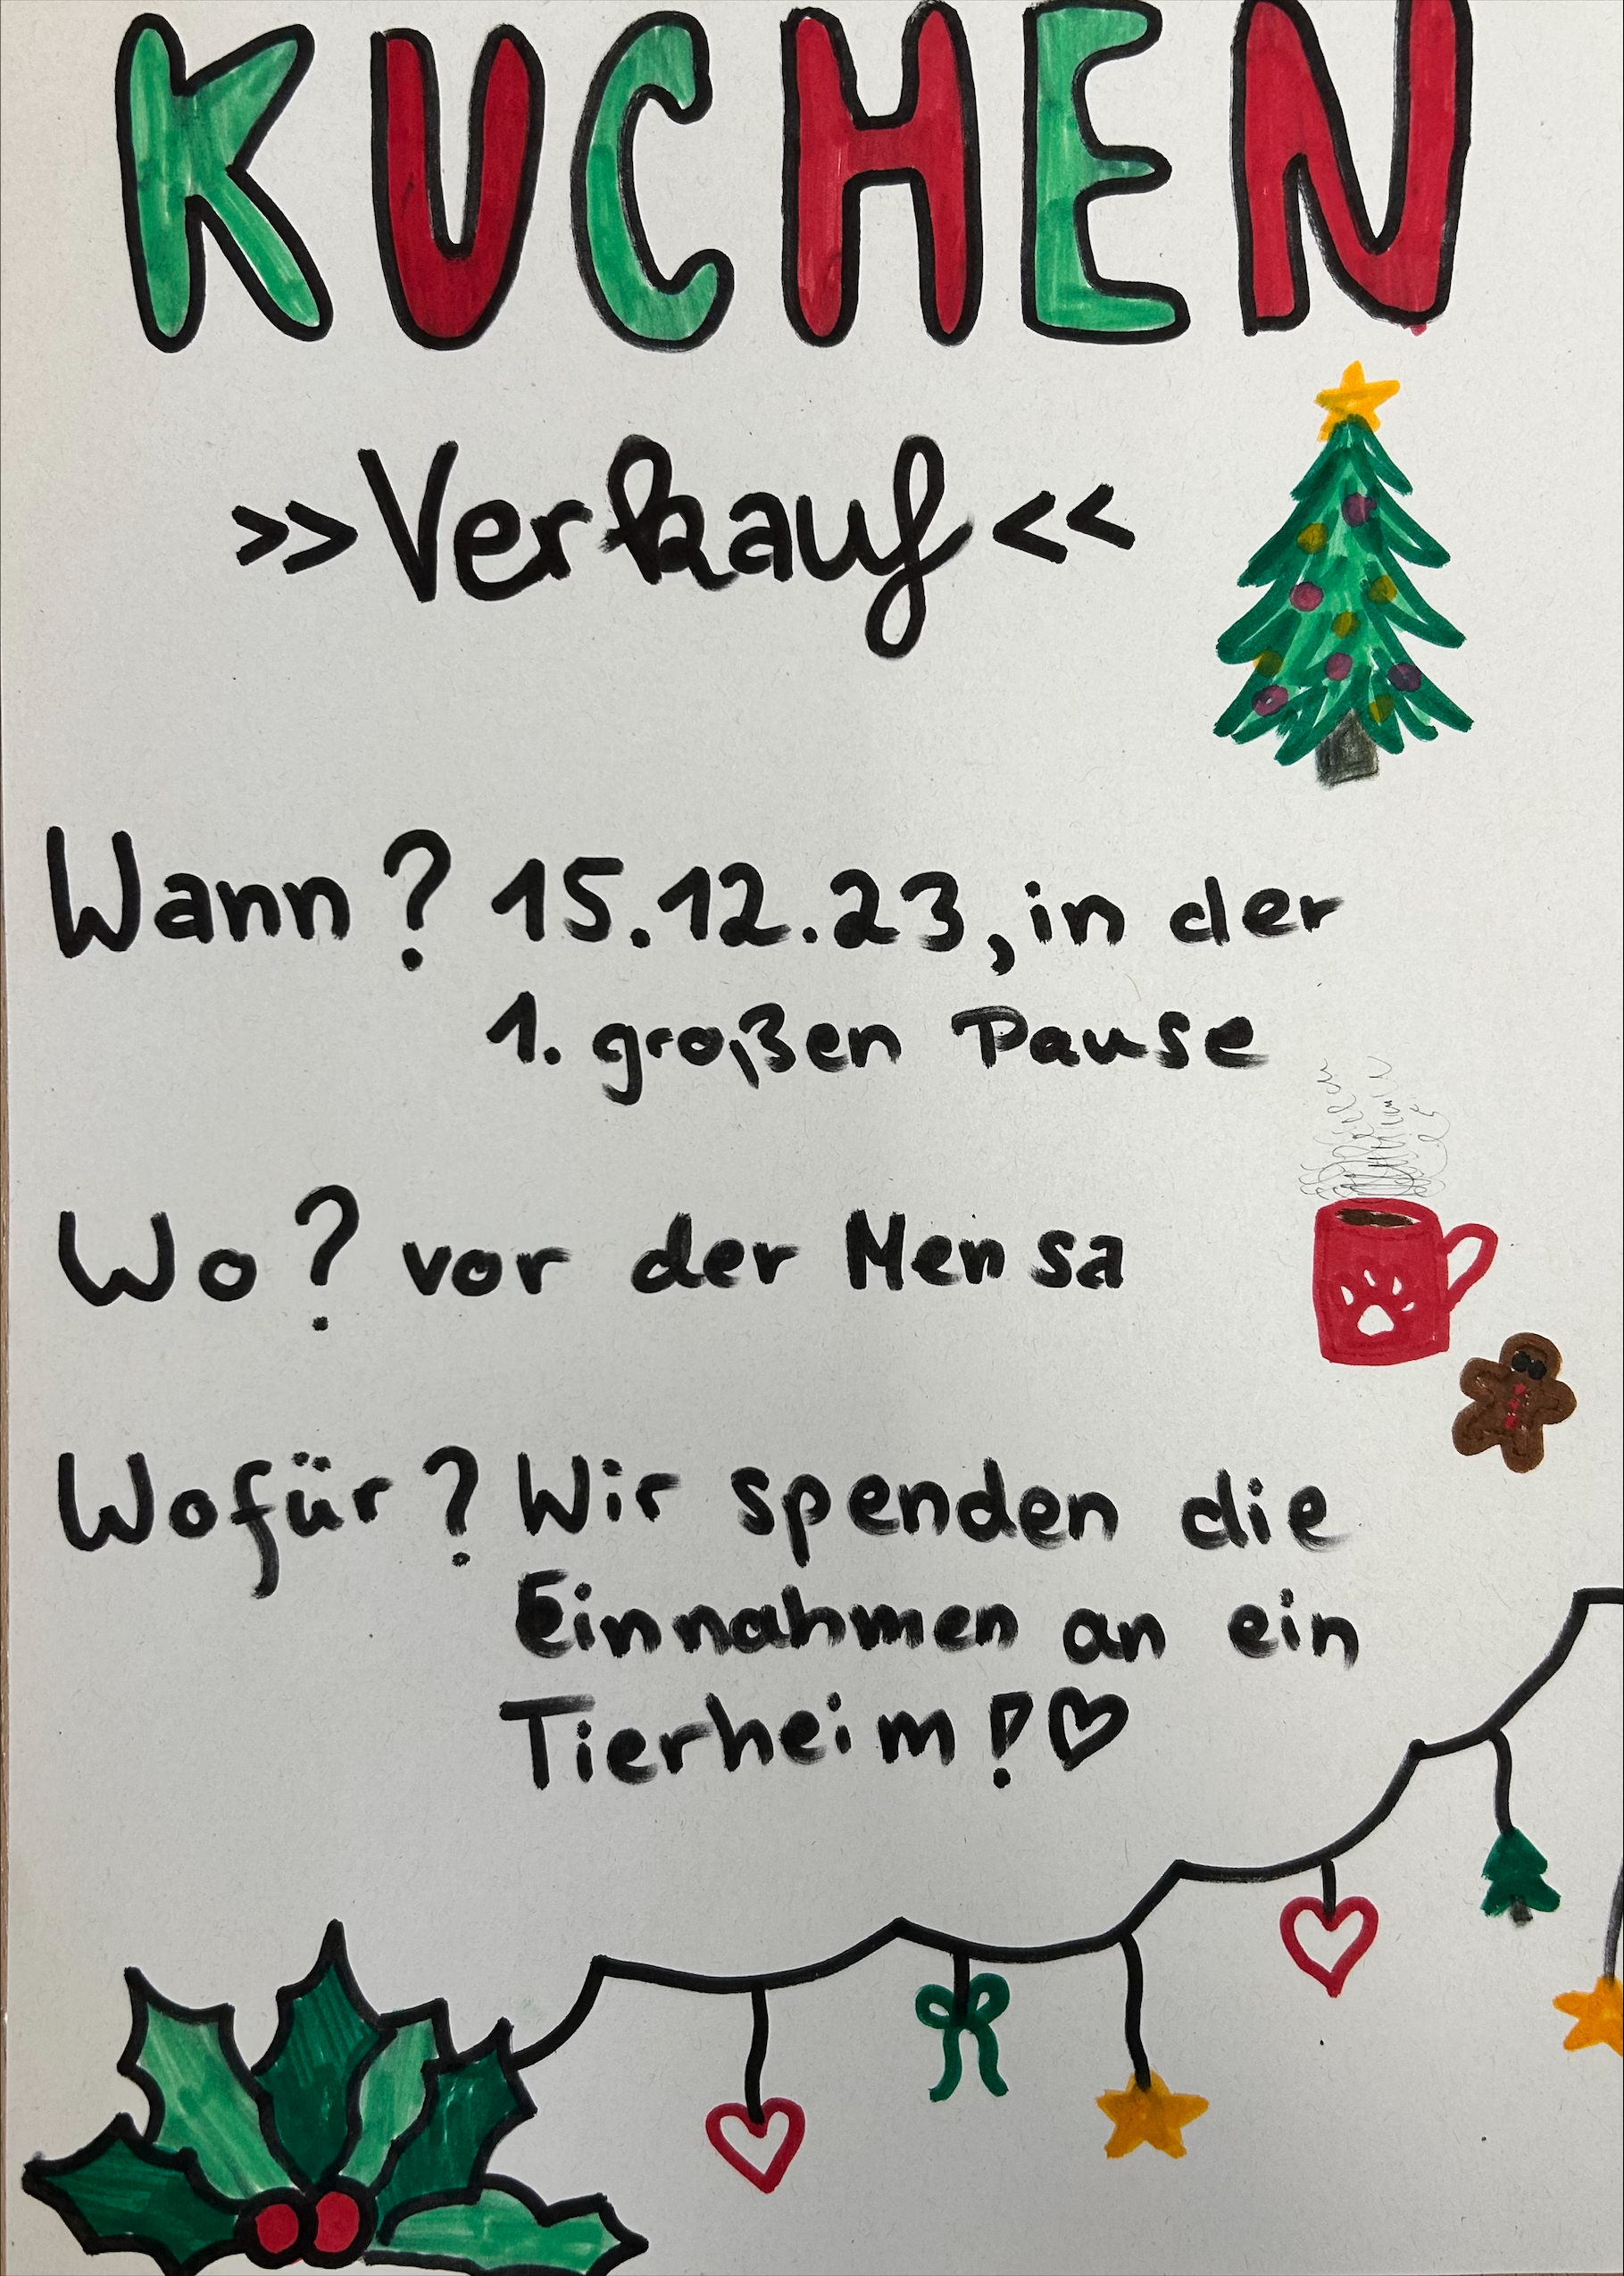 KUCHEN
>>Verkauf<<
Wann? 15.12.23, in der
1. großen Pause
Wo? vor der Mensa
Wofür? Wir spenden die
Einnahmen an ein
Tierheim!♡